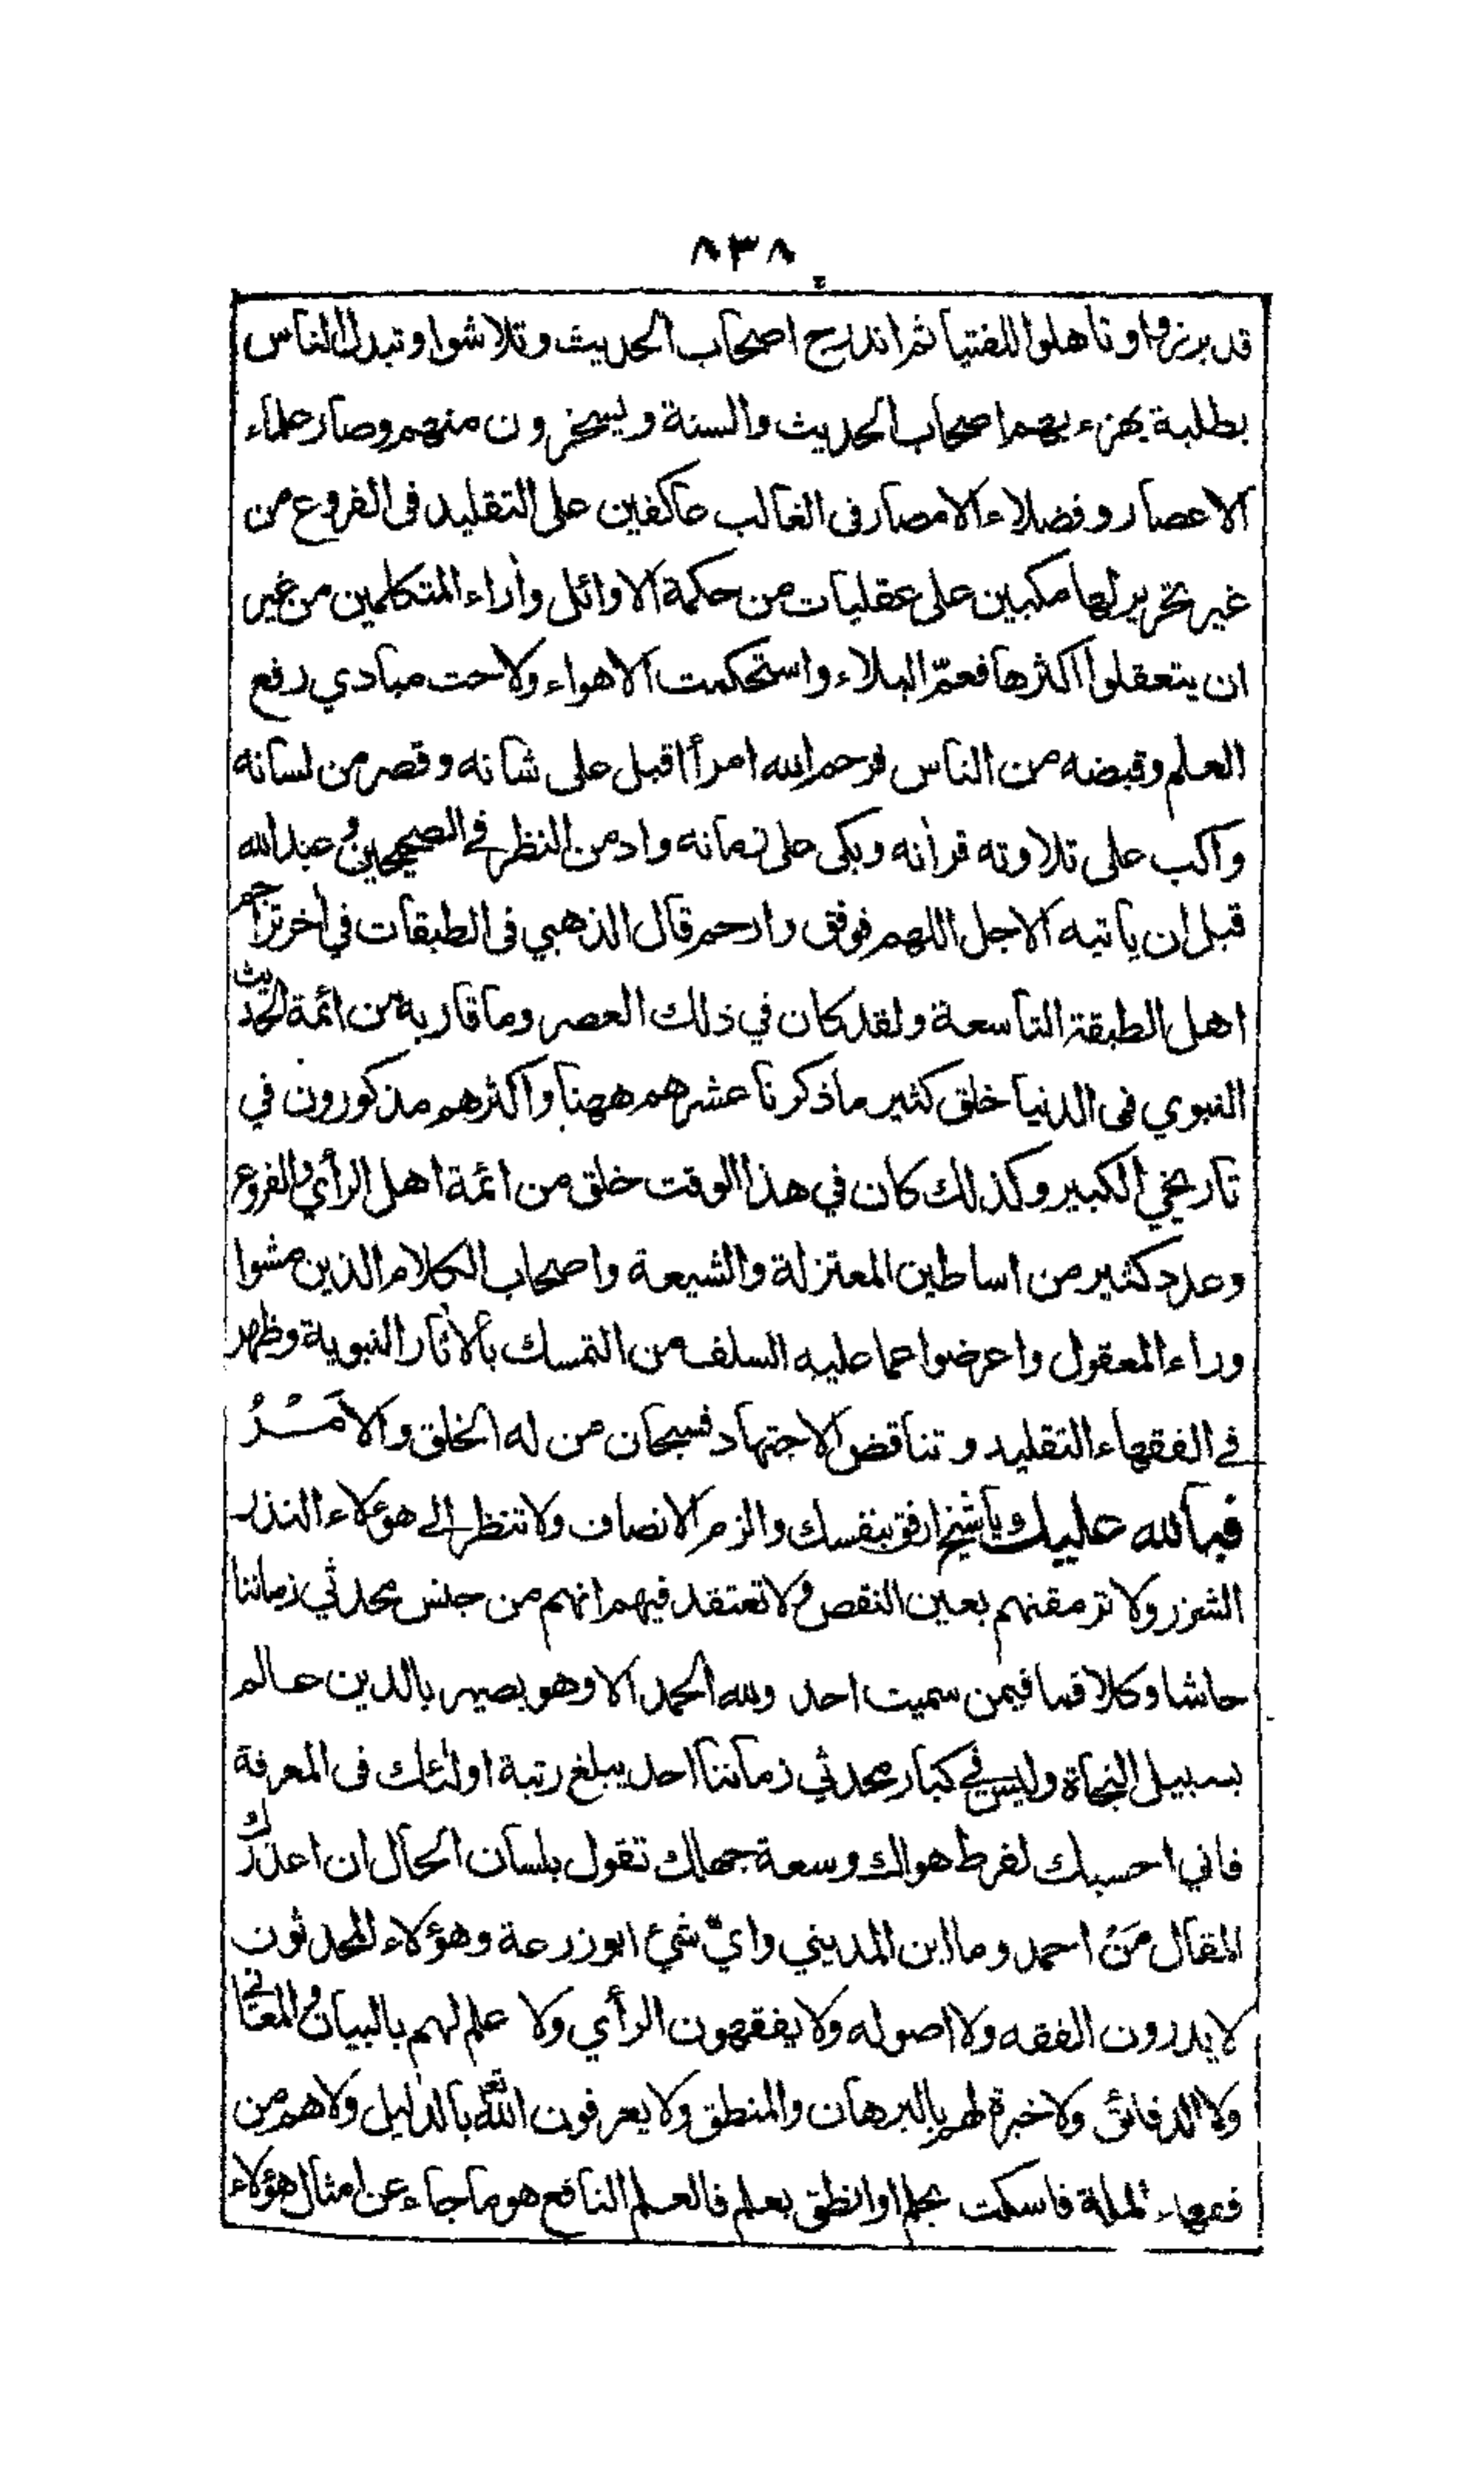 ٨٣٨
قد برزوا وتاهلوا للفتيا ثم اندرج اصحاب الحديث وتلاشوا وتبدل الناس
بطلبة يهزء بهم اصحاب الحديث والسنة ويسخرون منهم وصار علماء
الاعصار وفضلاء الامصار فى الغالب عاكفين على التقليد فى الفروع من
غير تحرير لها مكبين على عقليات من حكمة الاوائل وأراء المتكلمين من غير
ان يتعقلوا اكثرها فعمّ البلاء واستحكمت الاهواء ولاحت مبادي رفع
العلم وقبضه من الناس فرحم الله امرأ اقبل على شانه وقصر من لسانه
واكب على تلاوته قرأنه وبكى على زمانه وادمن النظر في الصحيحين وعبد الله
قبل ان ياتيه الاجل اللهم فوفق وارحم قال الذهبي فى الطبقات في أخر تراجم
اهل الطبقة التاسعة ولقد كان في ذلك العصر وما قاربه من ائمة الحديث
النبوي فى الدنيا خلق كثير ما ذكرنا عشرهم ههنا واكثرهم مذكورون في
تاريخي الكبير وكذلك كان في هذا الوقت خلق من ائمة اهل الرأي والفروع
وعدد كثير من اساطين المعتزلة والشيعة واصحاب الكلام الذين مشوا
وراء المعقول واعرضوا عما عليه السلف من التمسك بالأثار النبوية وظهر
في الفقهاء التقليد وتناقض الاجتهاد فسبحان من له الخلق والامَْرُ
فبالله عليك ويا شيخ ارفق بنفسك والزم الانصاف ولا تنظر الى هؤلاء النذر
الشزر ولا ترمقنهم بعين النقص ولا تعتقد فيهم انهم من جنس محدثي زماننا
حاشا وكلا فما فيمن سميت احد ولله الحمد الا وهو بصير بالدين عالم
بسبيل النجاة وليس في كبار محدثي زماننا احد يبلغ رتبة اولئك فى المعرفة
فاني احسبك لفرط هواك وسعة جهلك تقول بلسان الحال ان اعذرك
المقال مَنْ احمد وما ابن المديني وايّ شئ ابو زرعة وهؤلاء المحدثون
لا يدرون الفقه ولا اصوله ولا يفقهون الرأي ولا علم لهم بالبيان والمعاني
ولا الدقائق ولا خبرة لهم بالبرهان والمنطق ولا يعرفون الله تعـ بالدليل ولا هم من
فقهاء الملة فاسكت بحلم او انطق بعلم فالعلم النافع هو ما جاء عن امثال هؤلاء